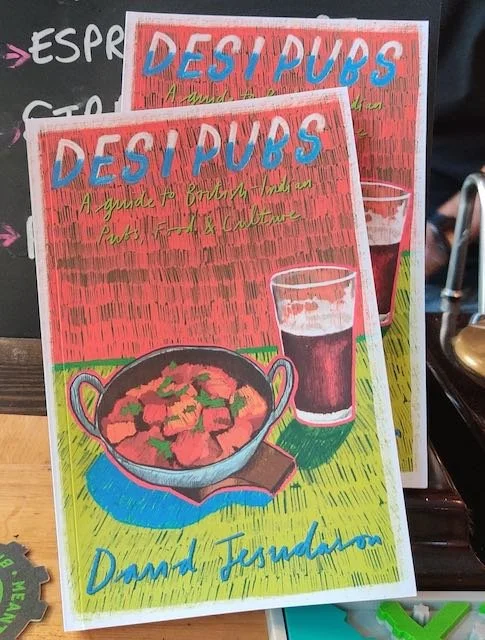 ESPR
DESI PUBS
A guide to
DESI PUBS
A guide to British-Indian
Pubs, Food & Culture
David Jesudason
MEANT